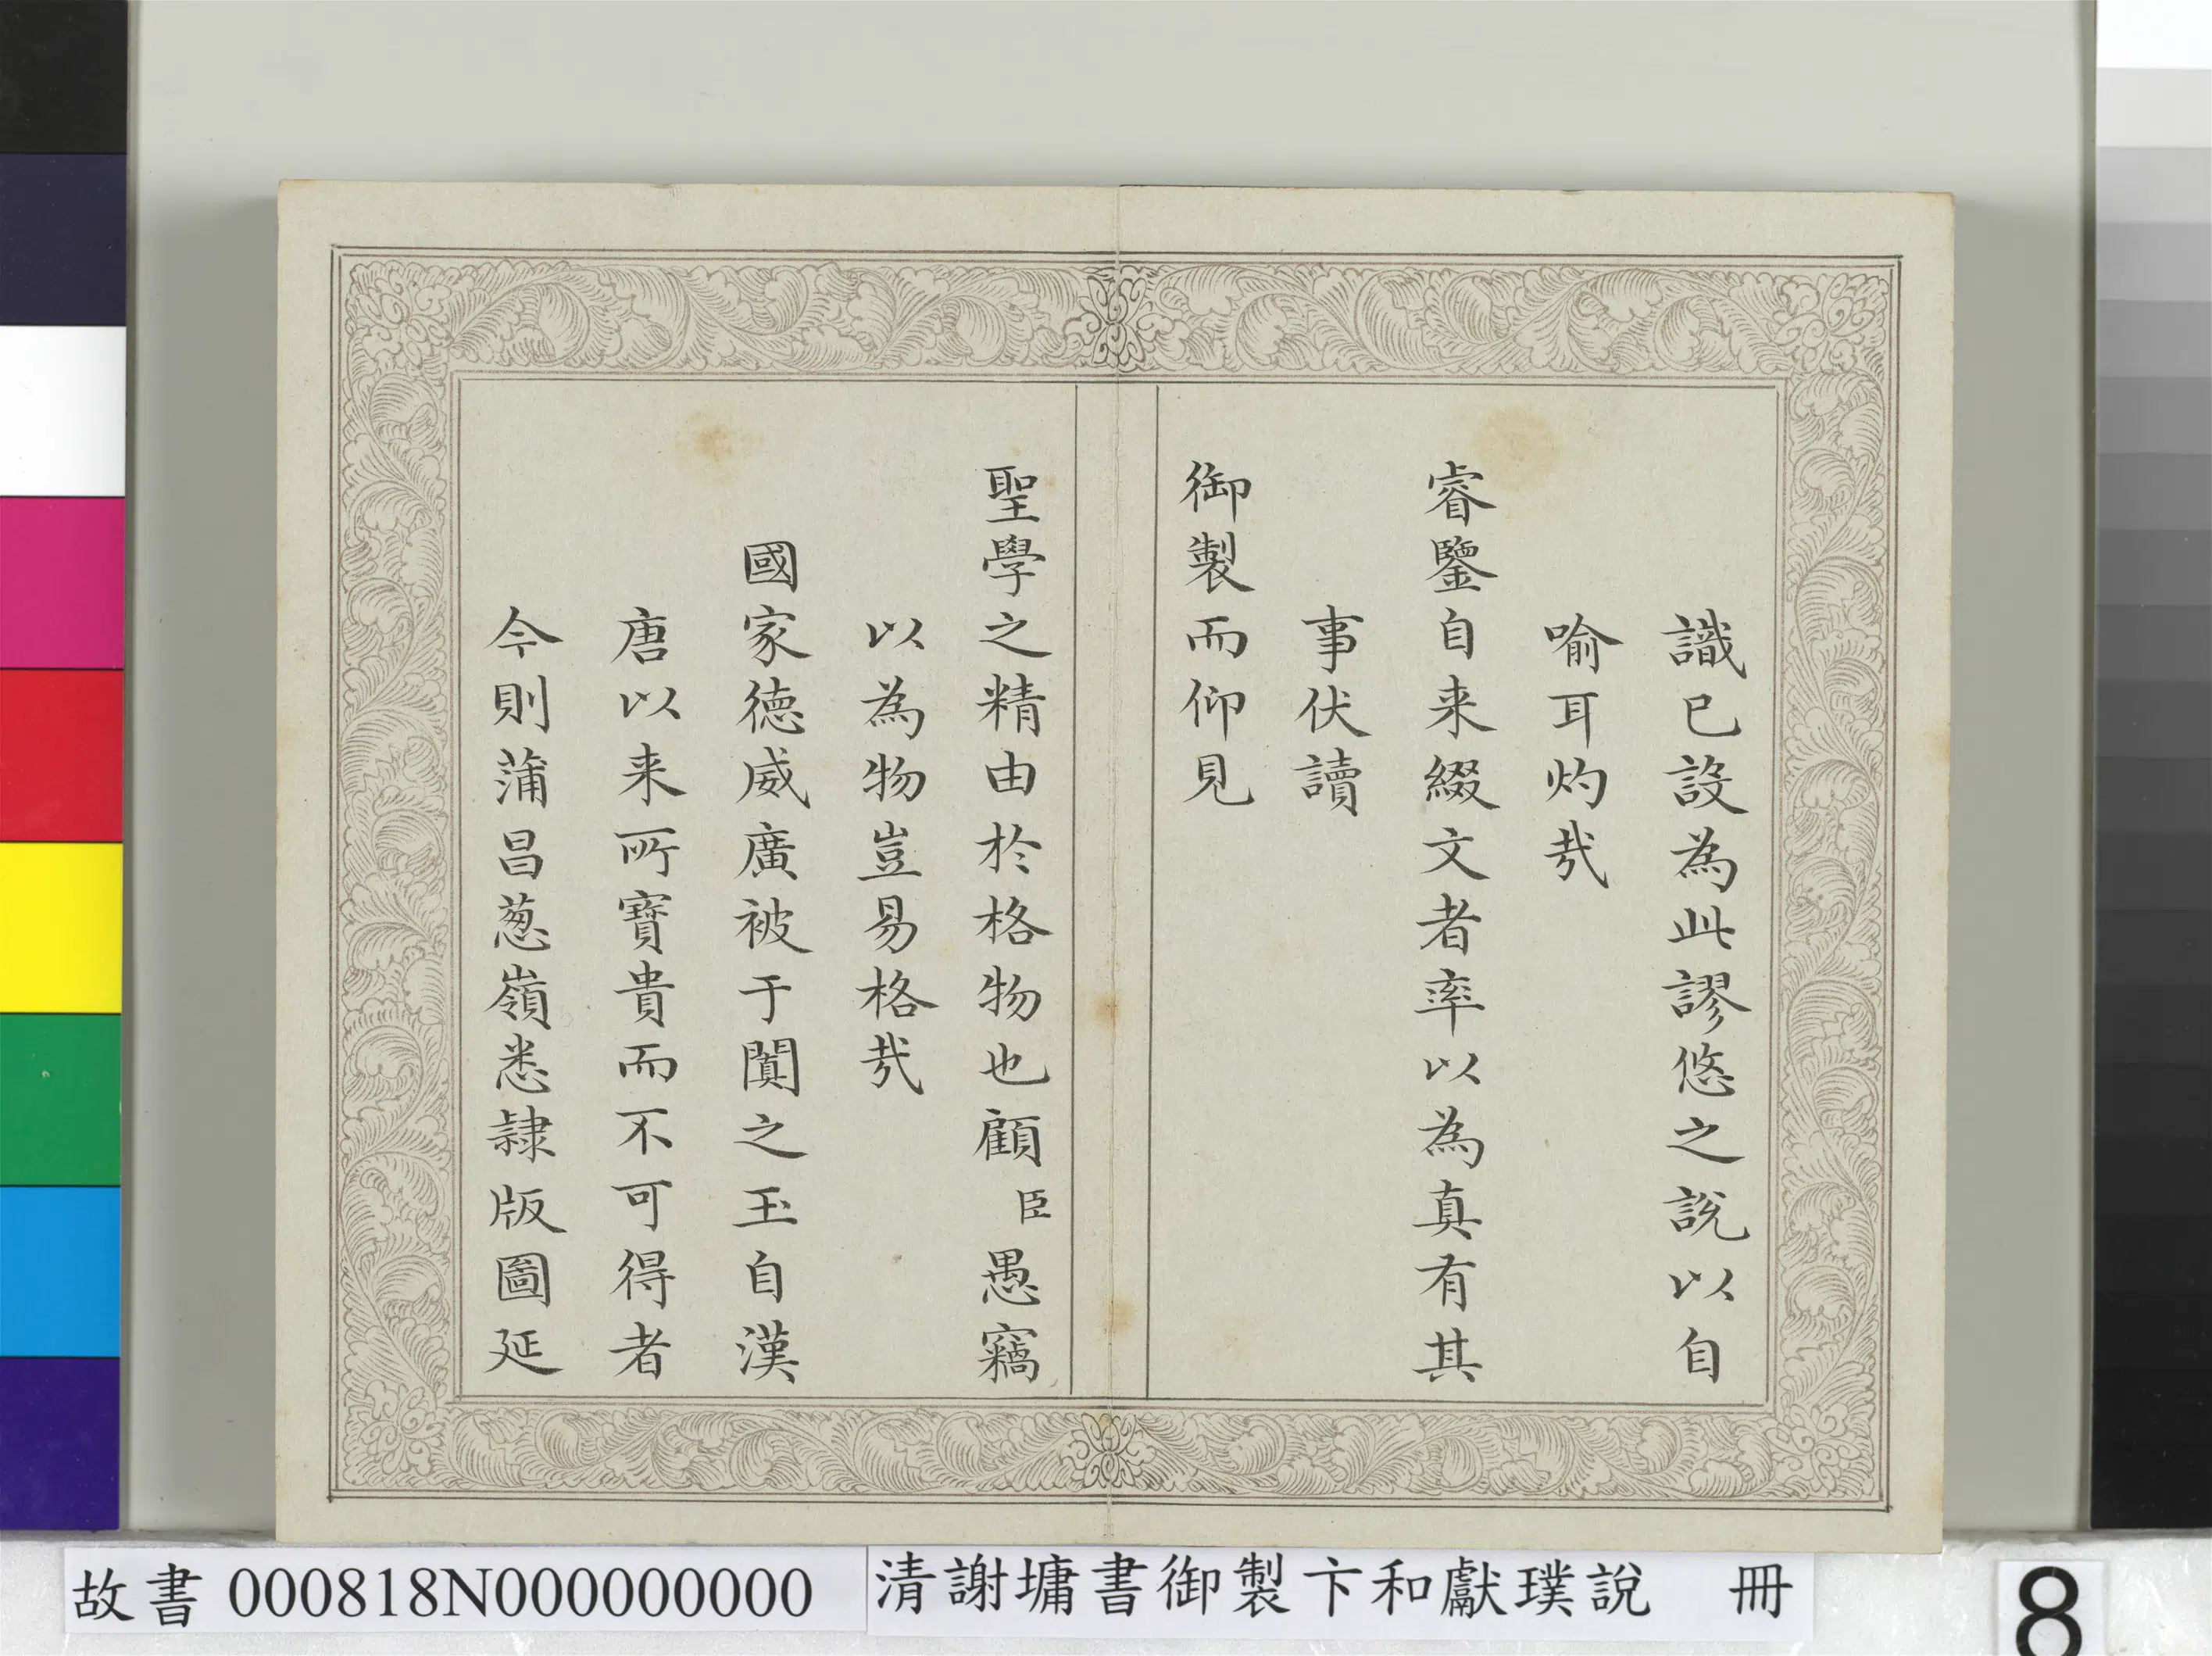 識已設為此謬悠之說以自
喻耳灼哉
睿鑒自来綴文者率以為真有其
事伏讀
御製而仰見
聖學之精由於格物也顧臣愚竊
以為物豈易格哉
國家德威廣被于闐之玉自漢
唐以来所寶貴而不可得者
今則蒲昌葱嶺悉隷版圖延
故書000818N000000000
清謝墉書御製卞和獻璞說 冊
8